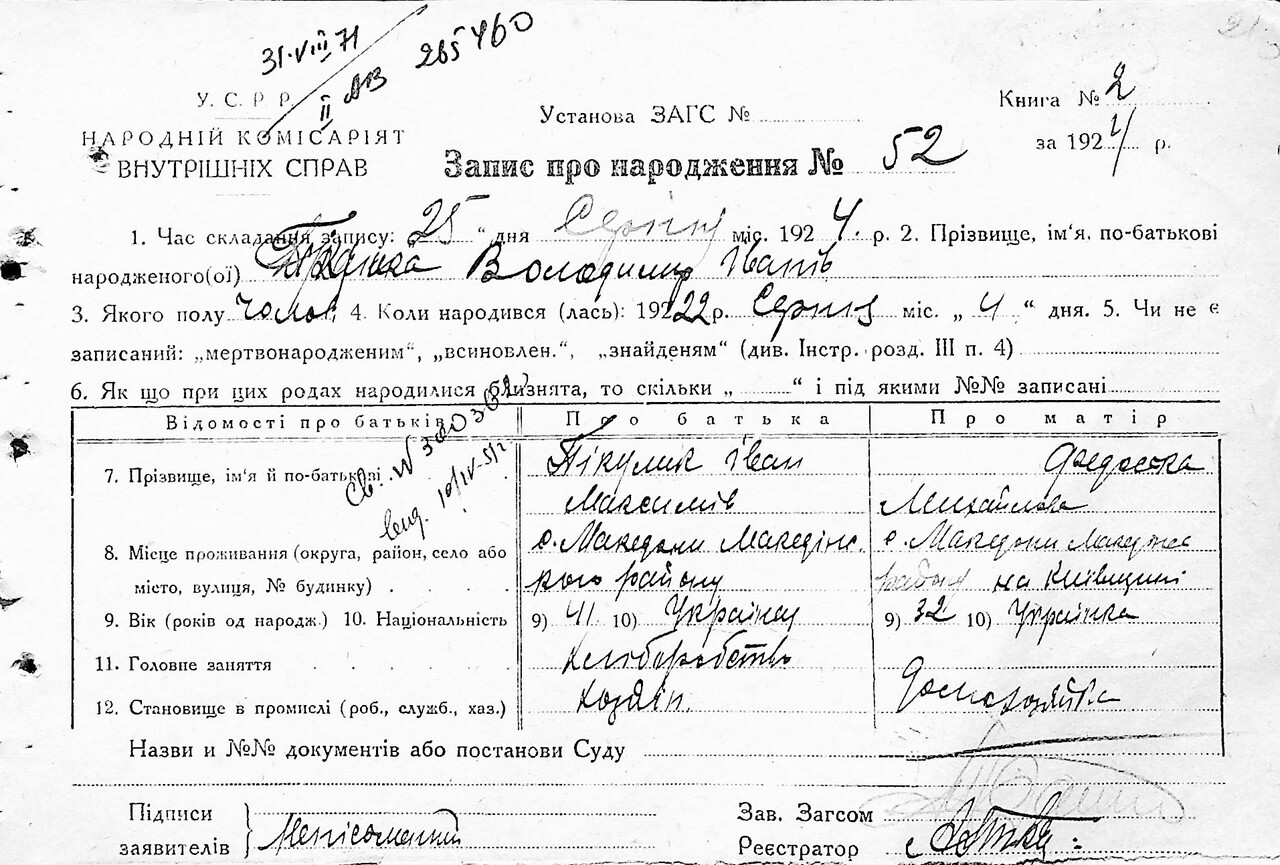 31·VIII 71
265460
II
У. С. Р. Р.
НАРОДНІЙ КОМІСАРІЯТ
ВНУТРІШНІХ СПРАВ
Установа ЗАГС №
Книга № 2
за 1924 р.
Запис про народження № 52
1. Час складання запису: „25“ дня Серпня міс. 1924. р. 2. Прізвище, ім'я, по-батькові
народженого(ої) Володимир Іванів
3. Якого полу чолов. 4. Коли народився (лась): 19222р. Серпня міс. „4“ дня. 5. Чи не є
записаний: „мертвонародженим“, „всиновлен.“, „знайденям“ (див. Інстр. розд. III п. 4)
6. Як що при цих родах народилися близнята, то скільки „ “ і під якими №№ записані
Відомості про батьків Про батька Про матір
7. Прізвище, ім'я й по-батькові Пікулик Іван Федоська
Максимів Михайлова
8. Місце проживания (округа, район, село або с. Македони Македонс. с. Македони
місто, вулиця, № будинку) кого району району на Київщині
9. Вік (років од народж.) 10. Національність 9) 41 10) Українец 9) 32 10) Українка
11. Головне заняття хліборобство
12. Становище в промислі (роб., служб., хаз.) хозяїн. домохазяйка
Назви и №№ документів або постанови Суду
Підписи
заявителів } Неписьменний
Зав. Загсом
Реєстратор